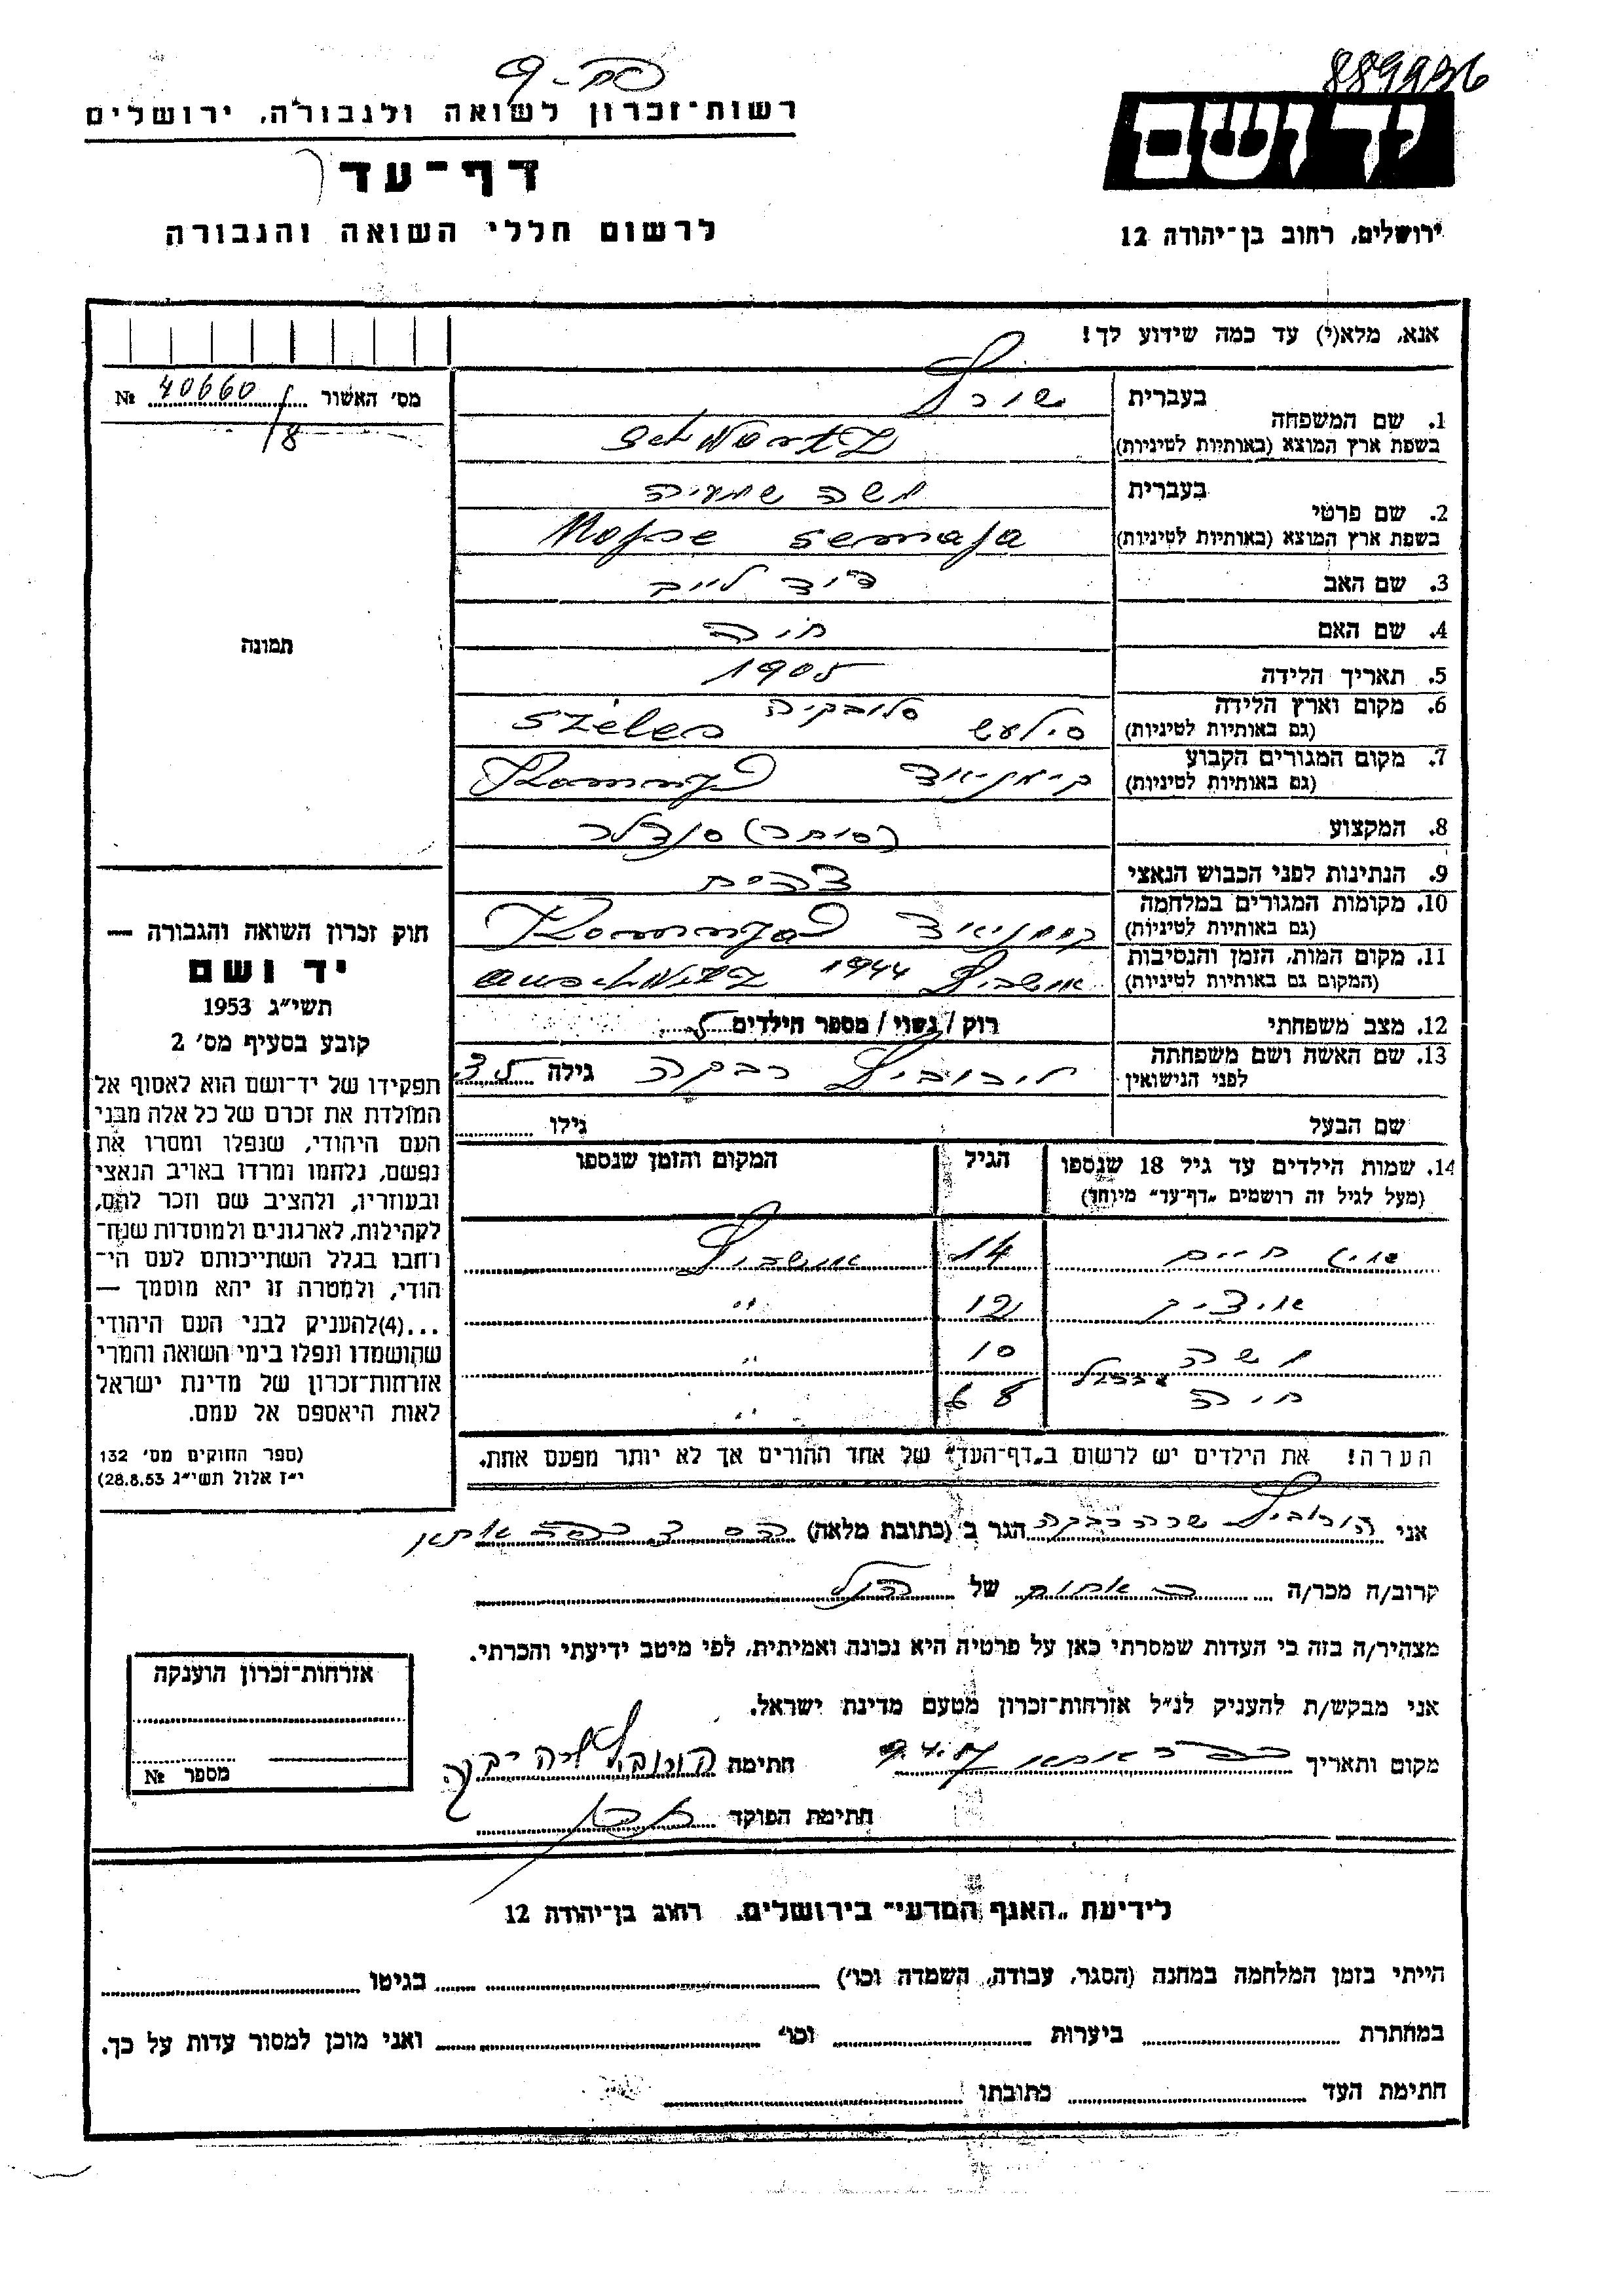 889936
פח-9
רשות-זכרון לשואה ולגבורה, ירושלים
דף-עד
לרשום חללי השואה והגבורה
יד ושם
ירושלים, רחוב בן-יהודה 12
אנא, מלא(י) עד כמה שידוע לך!
מס' האשור 40660 №
/8
תמונה
1. שם המשפחה בעברית שורץ
בשפת ארץ המוצא (באותיות לטיניות) Schwartz
2. שם פרטי בעברית משה שמעיה
בשפת ארץ המוצא (באותיות לטיניות) Mojse Semaja
3. שם האב דוד לייב
4. שם האם חיה
5. תאריך הלידה 1905
6. מקום וארץ הלידה (גם באותיות לטיניות) סילעש סלובקיה Szèles
7. מקום המגורים הקבוע (גם באותיות לטיניות)
8. המקצוע (סוחר) סנדלר
9. הנתינות לפני הכבוש הנאצי
10. מקומות המגורים במלחמה (גם באותיות לטיניות)
11. מקום המות, הזמן והנסיבות (המקום גם באותיות לטיניות) אושביץ 1944 Auschwitz
12. מצב משפחתי רוק / נשוי / מספר הילדים
13. שם האשה ושם משפחתה לפני הנישואין רבקה גילה
שם הבעל גילו
14. שמות הילדים עד גיל 18 שנספו (מעל לגיל זה רושמים „דף-עד" מיוחד) הגיל המקום והזמן שנספו
חיים 14 אושביץ
איציק 12 "
משה 10 "
חיה 8 6 "
הערה! את הילדים יש לרשום ב„דף-העד" של אחד ההורים אך לא יותר מפעם אחת.
חוק זכרון השואה והגבורה —
יד ושם
תשי"ג 1953
קובע בסעיף מס' 2
תפקידו של יד-ושם הוא לאסוף אל
המולדת את זכרם של כל אלה מבני
העם היהודי, שנפלו ומסרו את
נפשם, נלחמו ומרדו באויב הנאצי
ובעוזריו, ולהציב שם וזכר להם,
לקהילות, לארגונים ולמוסדות שנח-
רבו בגלל השתייכותם לעם הי-
הודי, ולמטרה זו יהא מוסמך —
...(4)להעניק לבני העם היהודי
שהושמדו ונפלו בימי השואה והמרי
אזרחות-זכרון של מדינת ישראל
לאות היאספם אל עמם.
(ספר החוקים מס' 132
י"ז אלול תשי"ג 28.8.53)
אני הורוביץ שרה רבקה הגר ב (כתובת מלאה) כפר אתא
קרוב/ה מכר/ה אחות של הנ"ל
מצהיר/ה בזה כי העדות שמסרתי כאן על פרטיה היא נכונה ואמיתית, לפי מיטב ידיעתי והכרתי.
אני מבקש/ת להעניק לנ"ל אזרחות-זכרון מטעם מדינת ישראל.
מקום ותאריך כפר אתא 9.4.57 חתימת
חתימת הפוקד
אזרחות-זכרון הוענקה
מספר №
לידיעת „האגף המדעי" בירושלים, רחוב בן-יהודה 12
הייתי בזמן המלחמה במחנה (הסגר, עבודה, השמדה וכו') בגיטו
במחתרת ביערות וכו' ואני מוכן למסור עדות על כך.
חתימת העד כתובתו